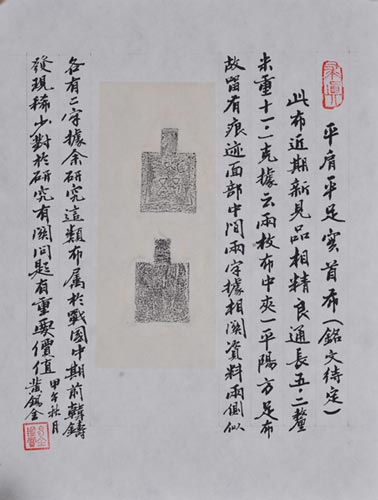 平肩平足實首布(銘文待定)
此布近期新見品相精良通長五.二釐
米重十一.二克據云兩枚布中夾一平陽方足布
故留有痕迹面部中間兩字據相關資料兩側似
各有二字據余研究這類布属於戰國中期前韓鑄
發現稀少對於研究有関問題有重要價值 黄錫全
甲午秋月